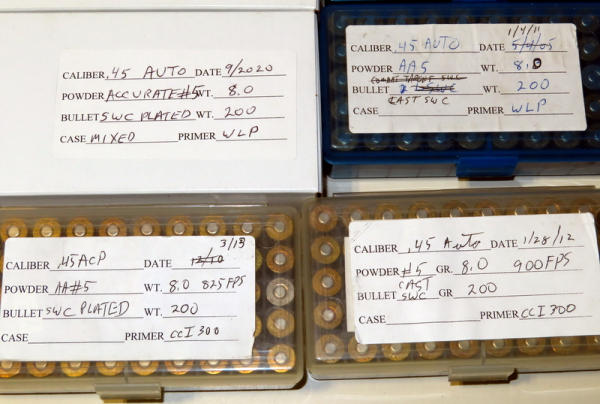 CALIBER .45 AUTO DATE 9/2020
POWDER ACCURATE #5 WT. 8.0
BULLET SWC PLATED WT. 200
CASE MIXED PRIMER WLP
1/4/11
CALIBER .45 AUTO DATE 5/4/05
POWDER AA5 WT. 8.0
COMBAT TARGET SWC
BULLET WT. 200
CAST SWC
CASE PRIMER WLP
3/13
CALIBER .45 ACP DATE 12/10
POWDER AA#5 WT. 8.0 825 FPS
BULLET SWC PLATED WT. 200
CASE PRIMER CCI 300
CALIBER .45 Auto DATE 1/28/12
POWDER #5 GR. 8.0 900 FPS
CAST
BULLET SWC GR 200
CASE PRIMER CCI 300